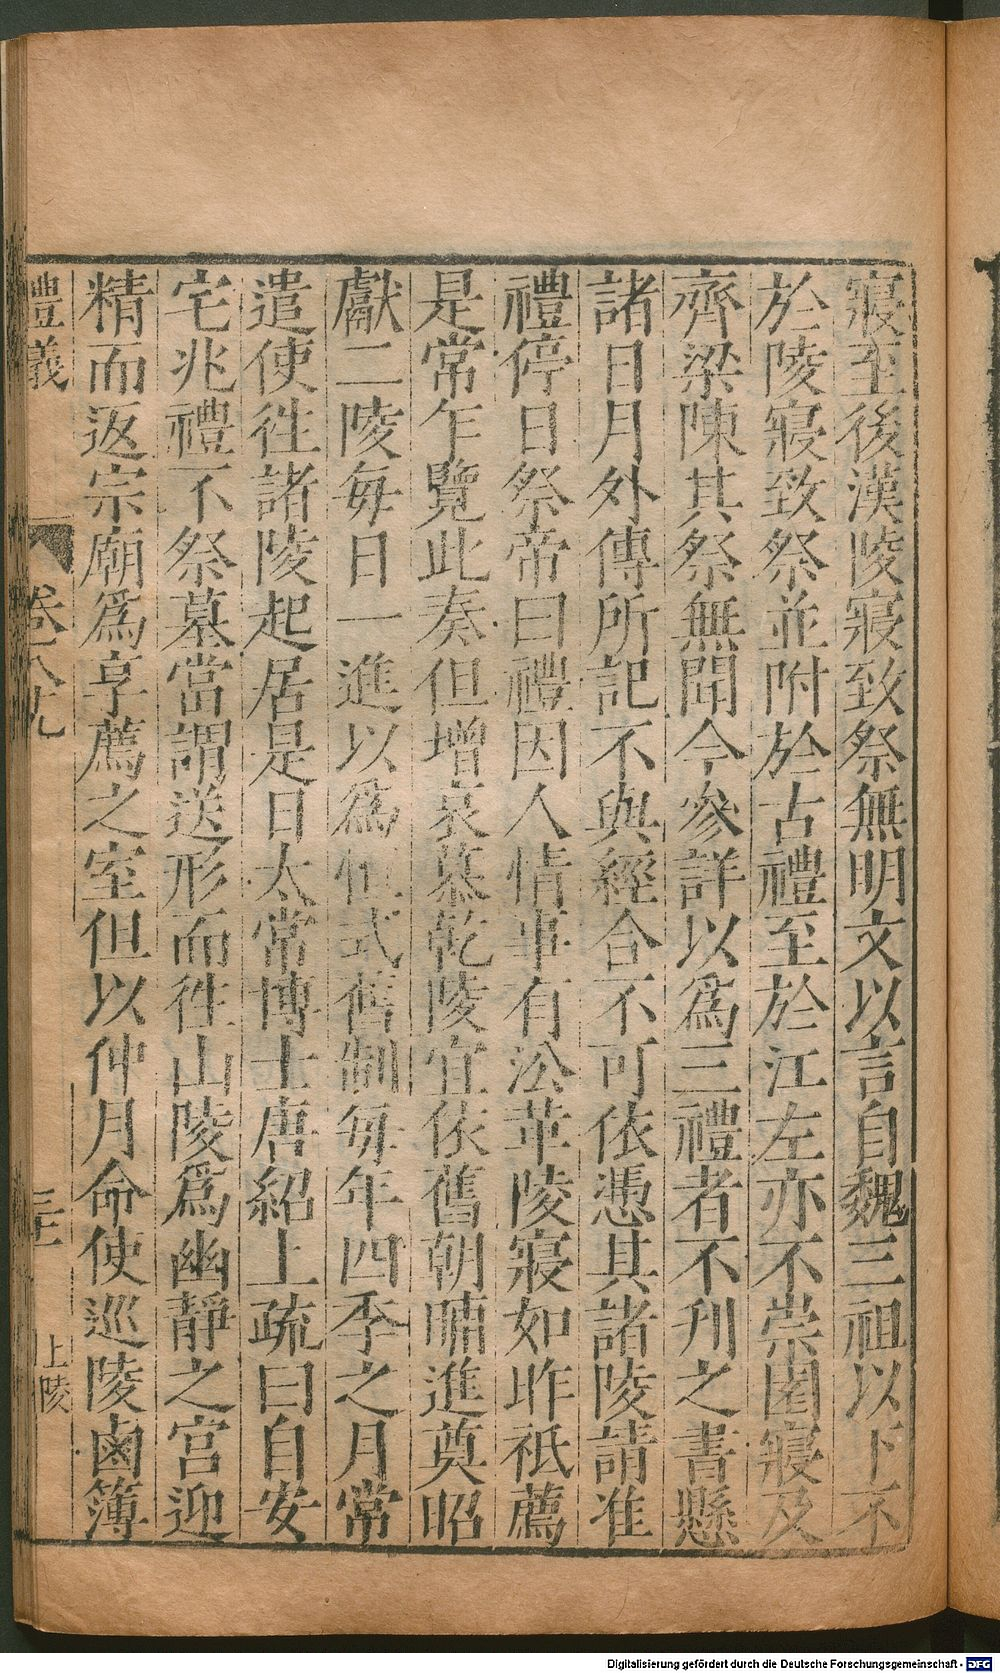 寢至後漢陵寢致祭無明文以言自魏三祖以下不
於陵寢致祭並附於古禮至於江左亦不崇園寢及
齊梁陳其祭無聞今參詳以為三禮者不刋之書懸
諸日月外傳所記不與經合不可依憑其諸陵請准
禮停日祭帝曰禮因人情事有㳂革陵寢如昨祇薦
是常乍覽此奏但增哀慕乾陵宜依舊朝晡進奠昭
獻二陵每日一進以為恒式舊制每年四季之月常
遣使徃諸陵起居是日太常博士唐紹上疏曰自安
宅兆禮不祭墓當謂送形而徃山陵為幽靜之宮迎
精而返宗廟為享薦之室但以仲月命使巡陵鹵簿
禮義 卷八九 三十一 上陵
Digitalisierung gefördert durch die Deutsche Forschungsgemeinschaft - DFG